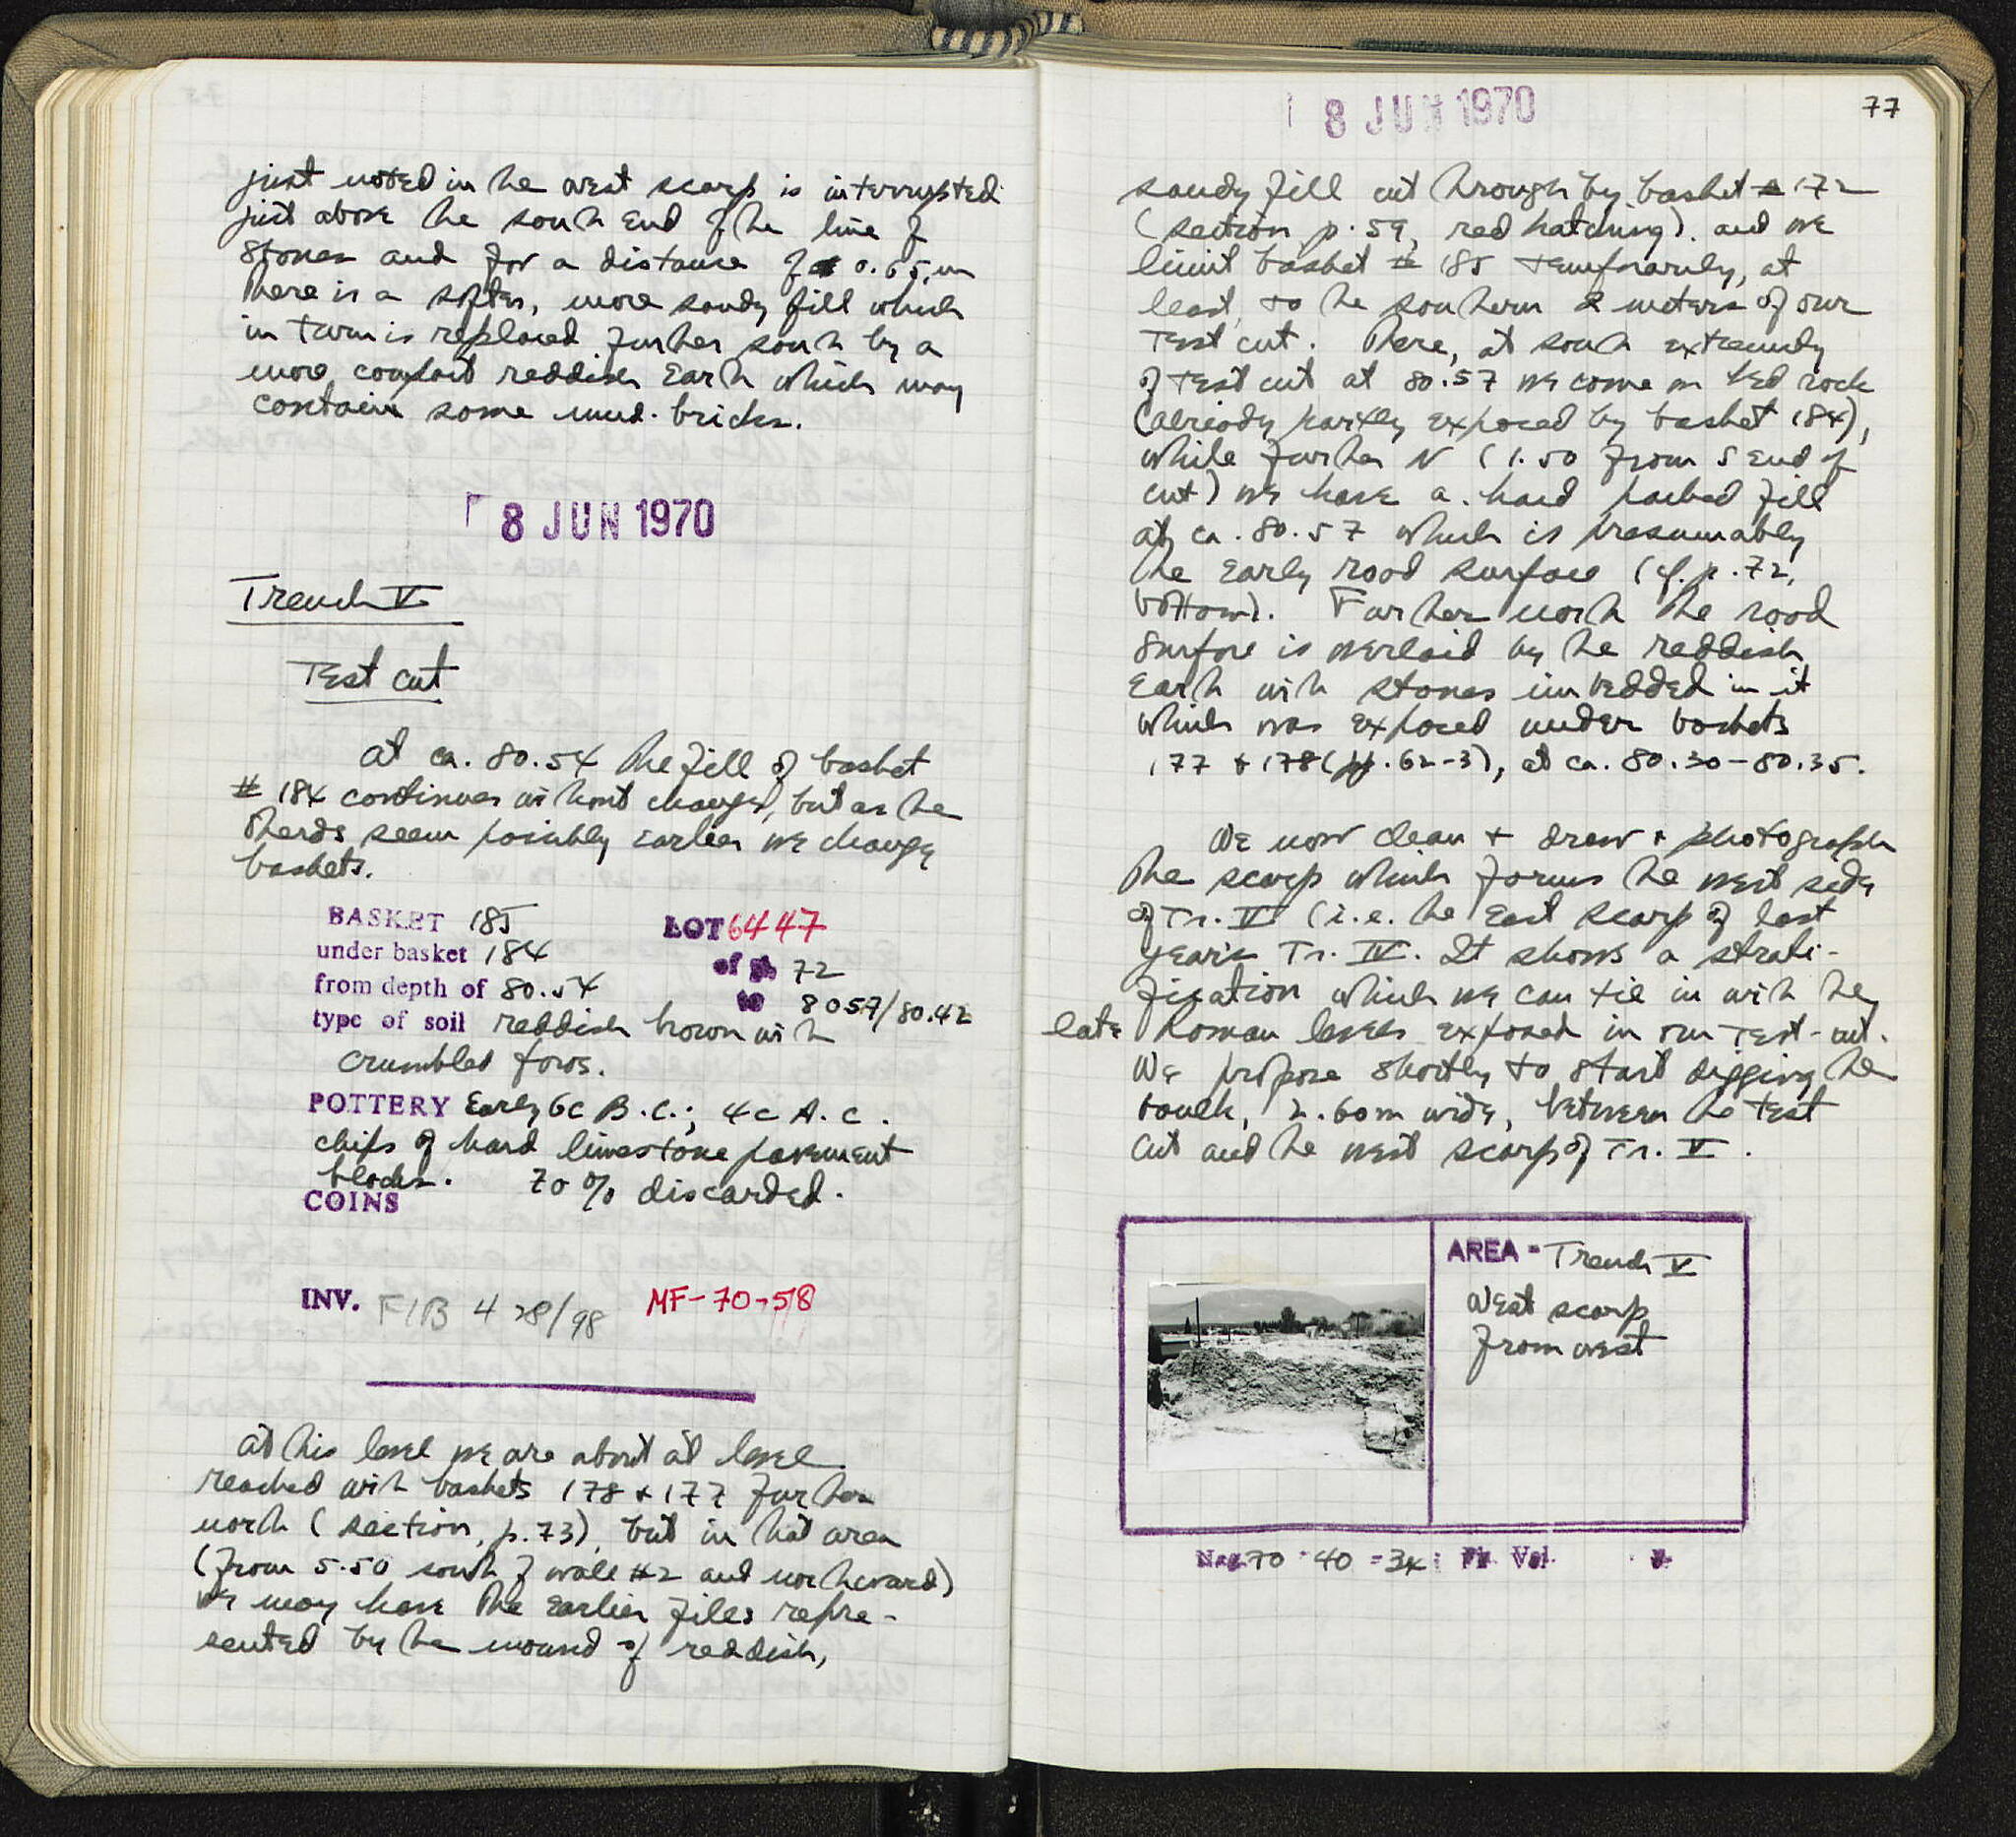 just noted in the west scarp is interrupted
just above the south end of the line of
stones and for a distance of 0.65 m
there is a softer, more sandy fill which
in turn is replaced further south by a
more compact reddish earth which may
contain some mud-bricks.
8 JUN 1970
Trench V
Test cut
at ca. 80.54 the fill of basket
# 184 continues without change, but as the
sherds seem possibly earlier we change
baskets.
BASKET 185 LOT 6447
under basket 184 of pg 72
from depth of 80.54 to 80.57/80.42
type of soil reddish brown with
crumbled poros.
POTTERY Early 6c B.C.; 4c A.C.
chips of hard limestone pavement
blocks. 70% discarded.
COINS
INV. FIB 428/98 MF-70-58
at this level we are about at level
reached with baskets 178 + 177 further
north (section, p. 73), but in that area
(from 5.50 south of wall #2 and northward)
we may have the earlier fills repre-
sented by the mound of reddish,
8 JUN 1970
77
sandy fill cut through by basket # 172
(section p. 59, red hatching). and we
limit basket # 185 temporarily, at
least, to the southern 2 meters of our
test cut. There, at south extremity
of test cut at 80.57 we come on bed rock
(already partly exposed by basket 184),
while further N (1.50 from S end of
cut) we have a hard packed fill
at ca. 80.57 which is presumably
the early road surface (cf. p. 72,
bottom). Further north the road
surface is overlaid by the reddish
earth with stones imbedded in it
which was exposed under baskets
177 + 178 (pp. 62-3), at ca. 80.30-80.35.
We now clean + draw + photograph
the scarp which forms the west side
of Tr. V (i.e. the East scarp of last
year's Tr. IV. It shows a strati-
fication which we can tie in with the
late Roman levels exposed in our test-cut.
We propose shortly to start digging the
baulk, 2.60m wide, between the test
cut and the west scarp of Tr. V.
AREA - Trench V
West scarp
from west
Neg. 70-40-34: Ph. Vol. p.